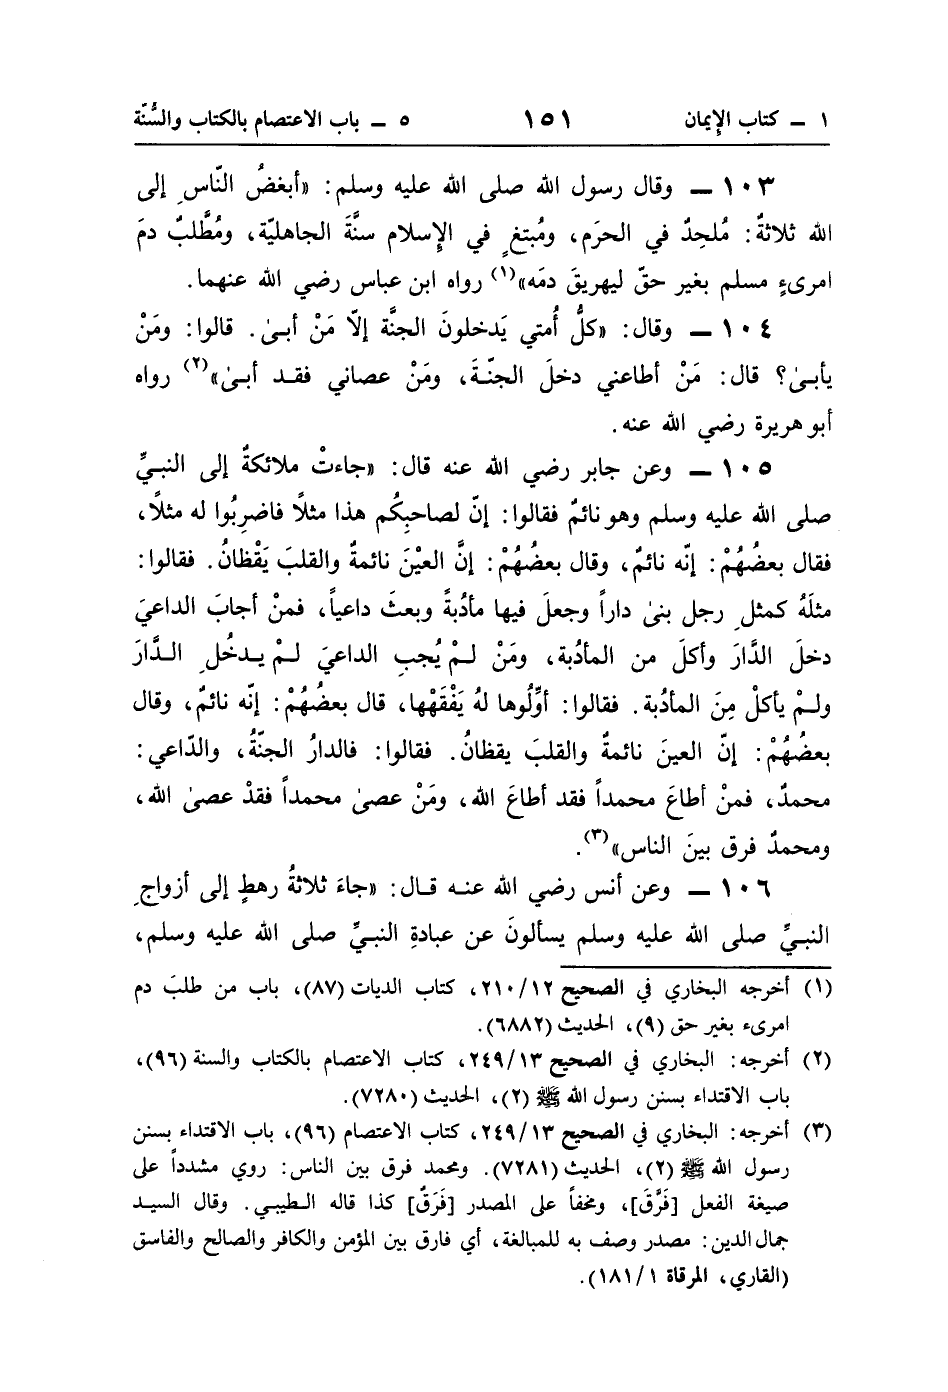 ١ ــ كتاب الإيمان ١٥١ ٥ ــ باب الاعتصام بالكتاب والسُّنّة
١٠٣ ــ وقال رسول الله صلى الله عليه وسلم: «أبغضُ النّاسِ إلى
الله ثلاثةٌ: مُلحِدٌ في الحرَم، ومُبتغٍ في الإسلام سنَّةَ الجاهليّة، ومُطَّلبٌ دمَ
امرىءٍ مسلم بغير حقّ ليهريقَ دمَه»(١) رواه ابن عباس رضي الله عنهما.
١٠٤ ــ وقال: «كلُّ أُمتي يَدخلونَ الجنَّة إلاّ مَنْ أبىٰ. قالوا: ومَنْ
يأبىٰ؟ قال: مَنْ أطاعني دخلَ الجنّةَ، ومَنْ عصاني فقد أبىٰ»(٢) رواه
أبو هريرة رضي الله عنه.
١٠٥ ــ وعن جابر رضي الله عنه قال: «جاءتْ ملائكةٌ إلى النبيِّ
صلى الله عليه وسلم وهو نائمٌ فقالوا: إنّ لصاحبِكُم هذا مثلاً فاضرِبُوا له مثلاً،
فقال بعضُهُمْ: إنّه نائمٌ، وقال بعضُهُمْ: إنَّ العيْنَ نائمةٌ والقلبَ يَقْظانُ. فقالوا:
مثلَهُ كمثلِ رجل بنىٰ داراً وجعلَ فيها مأدُبةً وبعثَ داعياً، فمنْ أجابَ الداعيَ
دخلَ الدَّارَ وأكلَ من المأدُبة، ومَنْ لمْ يُجبِ الداعيَ لمْ يدخُلِ الدَّارَ
ولمْ يأكلْ مِنَ المأدُبة. فقالوا: أوِّلُوها لهُ يَفْقَهْها، قال بعضُهُمْ: إنّه نائمٌ، وقال
بعضُهُمْ: إنّ العينَ نائمةٌ والقلبَ يقظانُ. فقالوا: فالدارُ الجنّةُ، والدّاعي:
محمدٌ، فمنْ أطاعَ محمداً فقد أطاعَ الله، ومَنْ عصىٰ محمداً فقدْ عصىٰ الله،
ومحمدٌ فرق بينَ الناس»(٣).
١٠٦ ــ وعن أنس رضي الله عنه قال: «جاءَ ثلاثةُ رهطٍ إلى أزواجِ
النبيِّ صلى الله عليه وسلم يسألونَ عن عبادةِ النبيِّ صلى الله عليه وسلم،
(١) أخرجه البخاري في الصحيح ٢١٠/١٢، كتاب الديات (٨٧)، باب من طلبَ دم
امرىء بغير حق (٩)، الحديث (٦٨٨٢).
(٢) أخرجه: البخاري في الصحيح ٢٤٩/١٣، كتاب الاعتصام بالكتاب والسنة (٩٦)،
باب الاقتداء بسنن رسول الله ﷺ (٢)، الحديث (٧٢٨٠).
(٣) أخرجه: البخاري في الصحيح ٢٤٩/١٣، كتاب الاعتصام (٩٦)، باب الاقتداء بسنن
رسول الله ﷺ (٢)، الحديث (٧٢٨١). ومحمد فرق بين الناس: روي مشدداً على
صيغة الفعل [فَرَّقَ]، ومخفاً على المصدر [فَرَقٌ] كذا قاله الطيبي. وقال السيد
جمال الدين: مصدر وصف به للمبالغة، أي فارق بين المؤمن والكافر والصالح والفاسق
(القاري، المرقاة ١٨١/١).